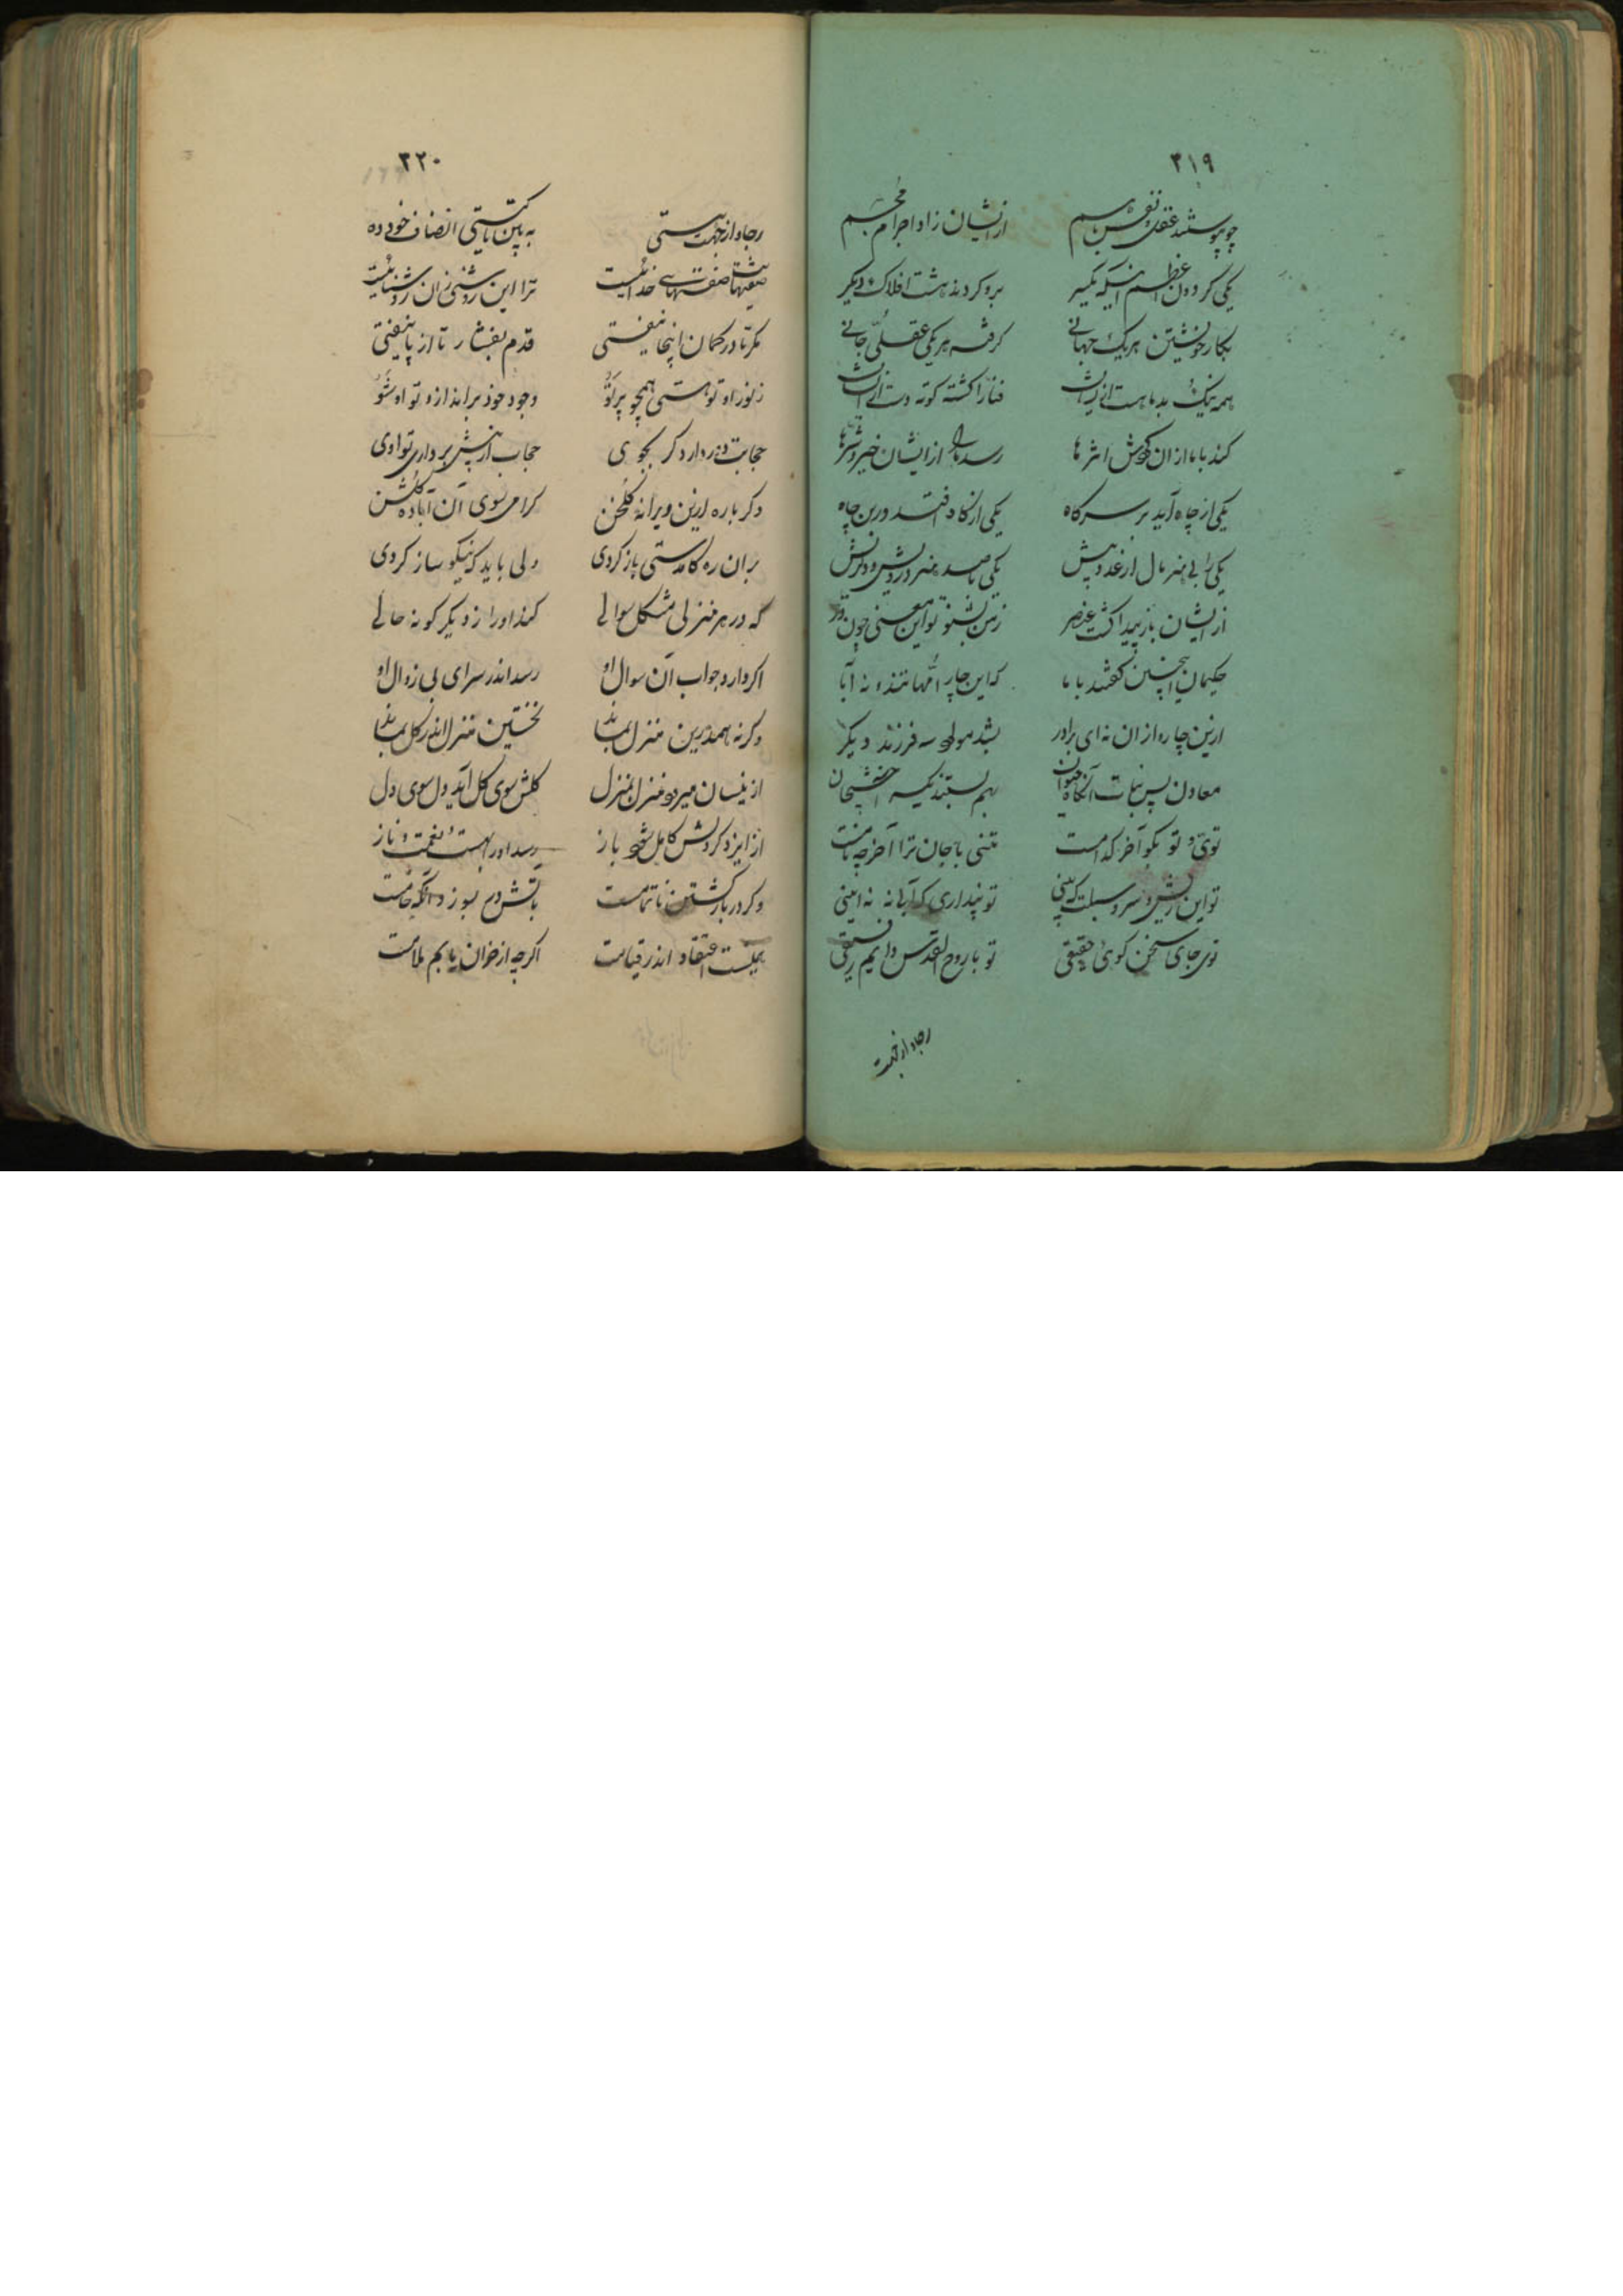 ٣١٩
چو پیوستند عقل و نفس باهم ازیشان زاد اجرام مجسم
یکی کردون اعظم اینکه یکسر بدو کردند هشت افلاک دیکر
بکار خویشتن هریک جهانی کرفته هر یکی عقلی و جانی
همه نیک و بد ما هست ازیشان فنا را کشته کوته دست ازیشان
کند با ما از ان کردش اثرها رسد مارا ازایشان خیر و شرها
یکی از چاه آید بر سر کاه یکی از کاه افتد درین چاه
یکی را بی هنر مال از عدد بیش یکی با صد هنر درویش و دلریش
ازیشان باز پیدا کشت عنصر زمن بشنو تو این معنی چون در
حکیمان اینچنین کفتند با ما که این چار امهاتند و نه آبا
ازین چار و از ان نه ای برادر بشد مولود سه فرزند دیکر
معادن پس نبات آنکاه حیوان بهم بستند یکسر
توی و تو بکو آخر کدامست تنی یا جان ترا آخر چه نامست
تو این ریش و سر و سبلت که بینی تو پنداری که آبی نه نه اینی
توی جای سخن کوی حقیقی تو با روح القدس دایم رفیقی
رجا دار
٣٢٠
رجا دار به بین تا کیستی انصاف خود ده
صفتهات صفتهای خدائیست ترا این روشنی زان روشنائیست
مکر تا در کمان اینجا نیفتی قدم بفشار تا از پا نیفتی
ز نور او تو هستی همچو پرتو وجود خود برانداز و تو او شو
حجابت دور دارد کر بجوی حجاب از پیش برداری تو اوی
دکر باره ازین ویرانه کلخن کرامی سوی آن آباده کلشن
بران ره کامدستی باز کردی ولی باید که نیکو ساز کردی
که در هر منزلی مشکل سوالی کند او را ز دیکر کونه حالی
اکر دارد جواب آن سوال او رسد اندر سرای بی زوال او
وکر نه همدرین منزل بماند نخستین منزل اندر کل بماند
ازینسان میرود منزل بمنزل کلش سوی کل آید دل سوی دل
از ایزد کردش کامل شود باز رسد او را بهشت و نعمت و ناز
وکر در بازکشتن ناتمامست باتش در بسوزد آنکه خامست
همینست اعتقاد اندر قیامت اکرچه از خران یابم ملامت